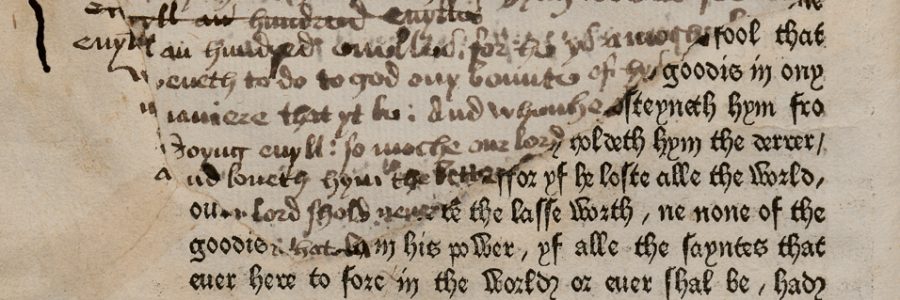 euyll an hundred euylles
euyll an hundred euylles. for he ys a moche fool that
weneth to do to god ony bounte of hys goodis in ony
maniere that yt be : And whan he steyneth hym fro
Doyng euyll : so moche our lord holdeth hym the derrer/
And loueth hym the better ffor yf he loste alle the World,
our lord shold neuer be the lasse Worth, ne none of the
goodis that in his poWer, yf alle the sayntes that
euer here to fore in the World or euer shal be, had